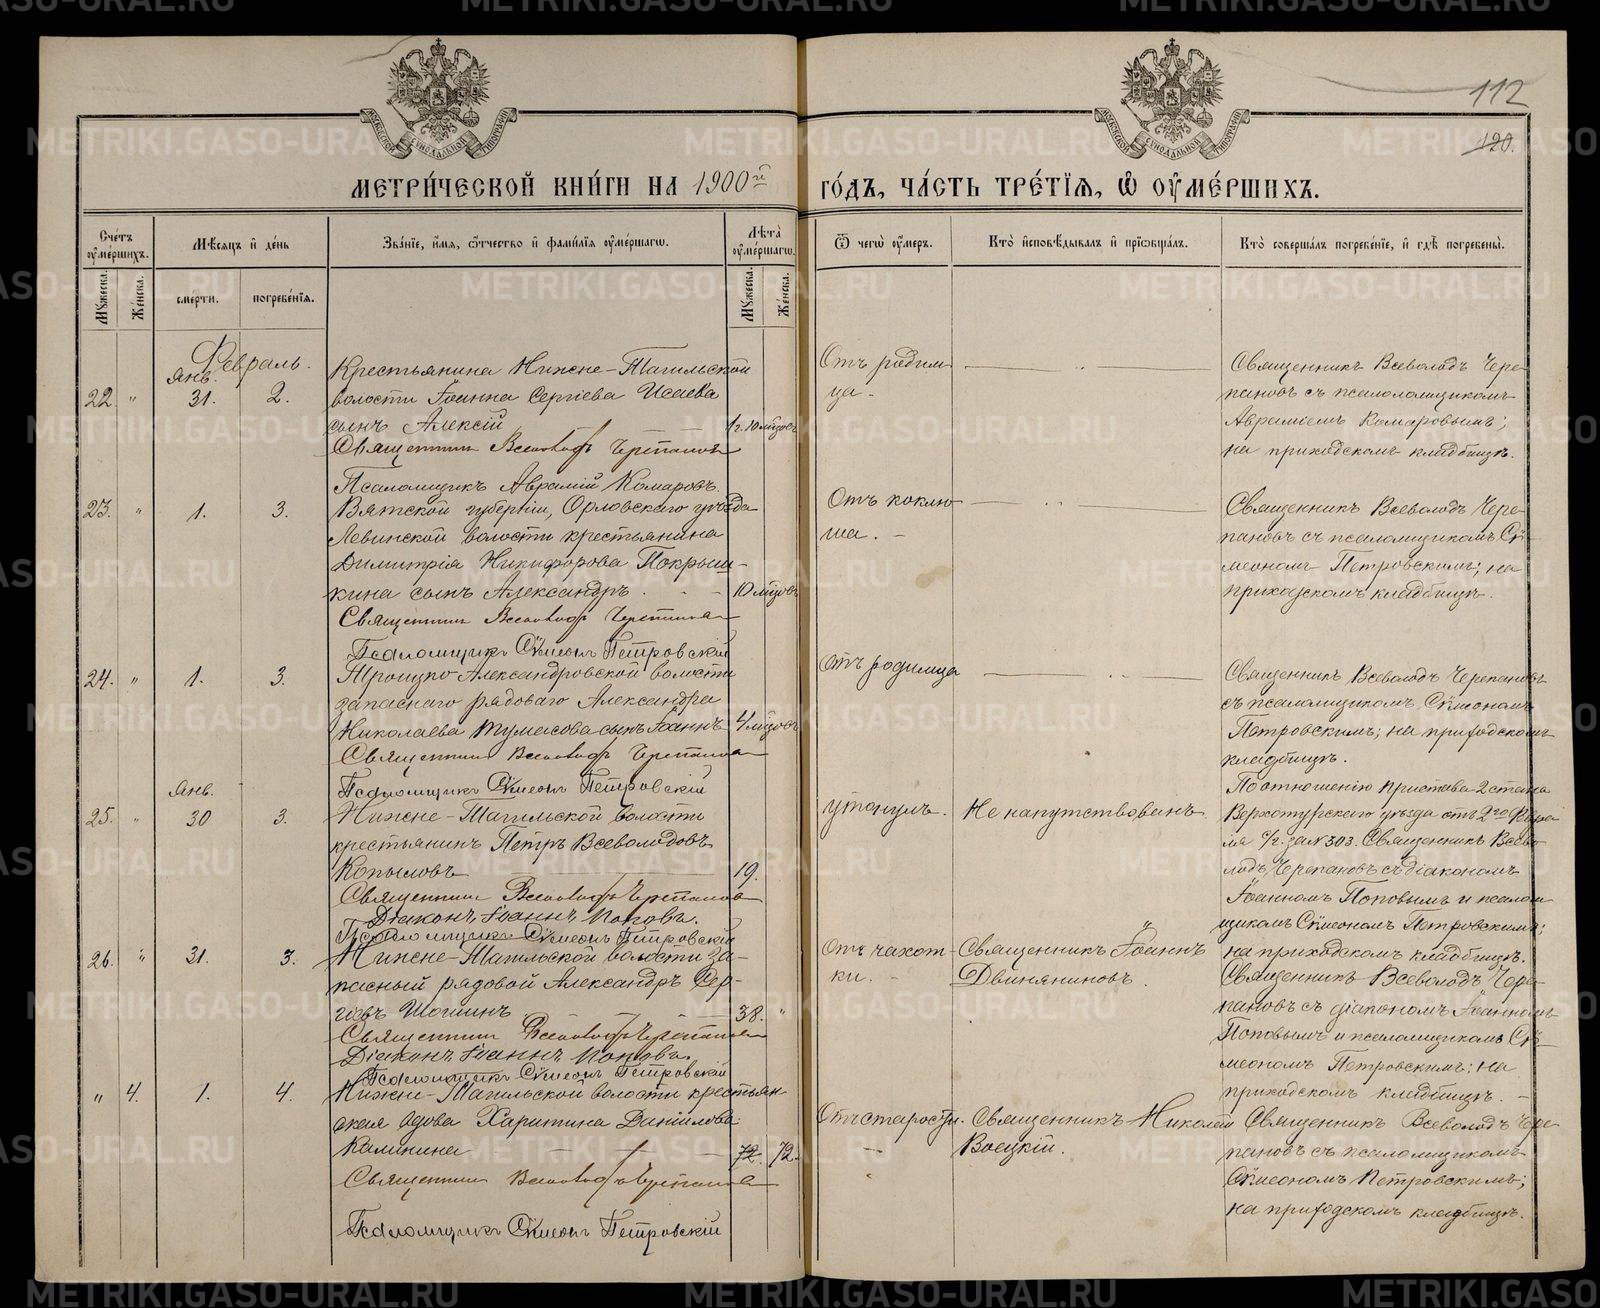 112
120.
МЕТРИ́ЧЕСКОЙ КНИ́ГИ НА 1900й ГО́ДЪ, ЧА́СТЬ ТРЕ́ТІѦ, Ѡ҆ ОУ҆МЕ́РШИХЪ.
Сче́тъ оу҆ме́ршихъ.
Мѣ́сяцъ и҆ де́нь
Зва́нїе, и҆́мѧ, ѻ҆́тчество и҆ фами́лїѧ оу҆ме́ршагѡ.
Лѣ́та оу҆ме́ршагѡ.
Ѿ чегѡ̀ оу҆́меръ.
Кто̀ и҆сповѣ́дывалъ и҆ прїѡбща́лъ.
Кто̀ соверша́лъ погребе́нїе, и҆ гдѣ̀ погребены̀.
Мꙋ́жеска.
Же́нска.
сме́рти.
погребе́нїѧ.
Мꙋ́жеска.
Же́нска.
Февраль.
Янв.
22. " 31. 2.
Крестьянина Нижне-Тагильской
волости Іоанна Сергіева Исаева
сынъ Алексій
1 г. 10 мѣцовъ
Священникъ Всеволодъ Черепановъ
Псаломщикъ Аврамій Комаровъ.
Отъ родим
ца.
Священникъ Всеволодъ Чере-
пановъ съ псаломщикомъ
Аврамiемъ Комаровымъ;
на приходскомъ кладбищѣ.
23. " 1. 3.
Вятской губерніи, Орловскаго уѣзда
Левинской волости крестьянина
Димитрія Никифорова Покрыш-
кина сынъ Александръ.
10 мѣцовъ
Священникъ Всеволодъ Черепановъ
Псаломщикъ Сѵмеонъ Петровскій
Отъ коклю
ша.
Священникъ Всеволодъ Чере-
пановъ съ псаломщикомъ Сѵ-
меономъ Петровскимъ; на
приходскомъ кладбищѣ.
24. " 1. 3.
Троицко-Александровской волости
запаснаго рядоваго Александра
Николаева Тумасова сынъ Іоаннъ
4 мѣцовъ
Священникъ Всеволодъ Черепановъ
Псаломщикъ Сѵмеонъ Петровскій
Отъ родимца
Священникъ Всеволодъ Черепановъ
съ псаломщикомъ Сѵмеономъ
Петровскимъ; на приходскомъ
кладбищѣ.
Янв.
25. " 30 3.
Нижне-Тагильской волости
крестьянинъ Петръ Всеволодовъ
Копыловъ
19.
Священникъ Всеволодъ Черепановъ
Діаконъ Іоаннъ Поповъ.
Псаломщикъ Сѵмеонъ Петровскій
утонулъ.
Не напутствованъ
По отношенію Пристава 2 стана
Верхотурскаго уѣзда отъ 2го Февра
ля с/г. за № 303. Священникъ Всево-
лодъ Черепановъ съ діакономъ
Іоанномъ Поповымъ и псалом-
щикомъ Сѵмеономъ Петровскимъ;
на приходскомъ кладбищѣ.
26. " 31. 3.
Нижне-Тагильской волости за-
пасный рядовой Александръ Сер-
гіевъ Шошинъ
38. "
Священникъ Всеволодъ Черепановъ
Діаконъ Іоаннъ Поповъ.
Псаломщикъ Сѵмеонъ Петровскій
Отъ чахот-
ки.
Священникъ Іоаннъ
Двиняниновъ.
Священникъ Всеволодъ Чере-
пановъ съ діакономъ Іоанномъ
Поповымъ и псаломщикомъ Сѵ-
меономъ Петровскимъ; на
приходскомъ кладбищѣ.
" 4. 1. 4.
Нижне-Тагильской волости крестьян-
ская вдова Харитина Даніилова
Калинина
72. 72.
Священникъ Всеволодъ Черепановъ
Псаломщикъ Сѵмеонъ Петровскій
Отъ старости.
Священникъ Николай
Воецкій.
Священникъ Всеволодъ Чере-
пановъ съ псаломщикомъ
Сѵмеономъ Петровскимъ;
на приходскомъ кладбищѣ.
METRIKI.GASO-URAL.RU